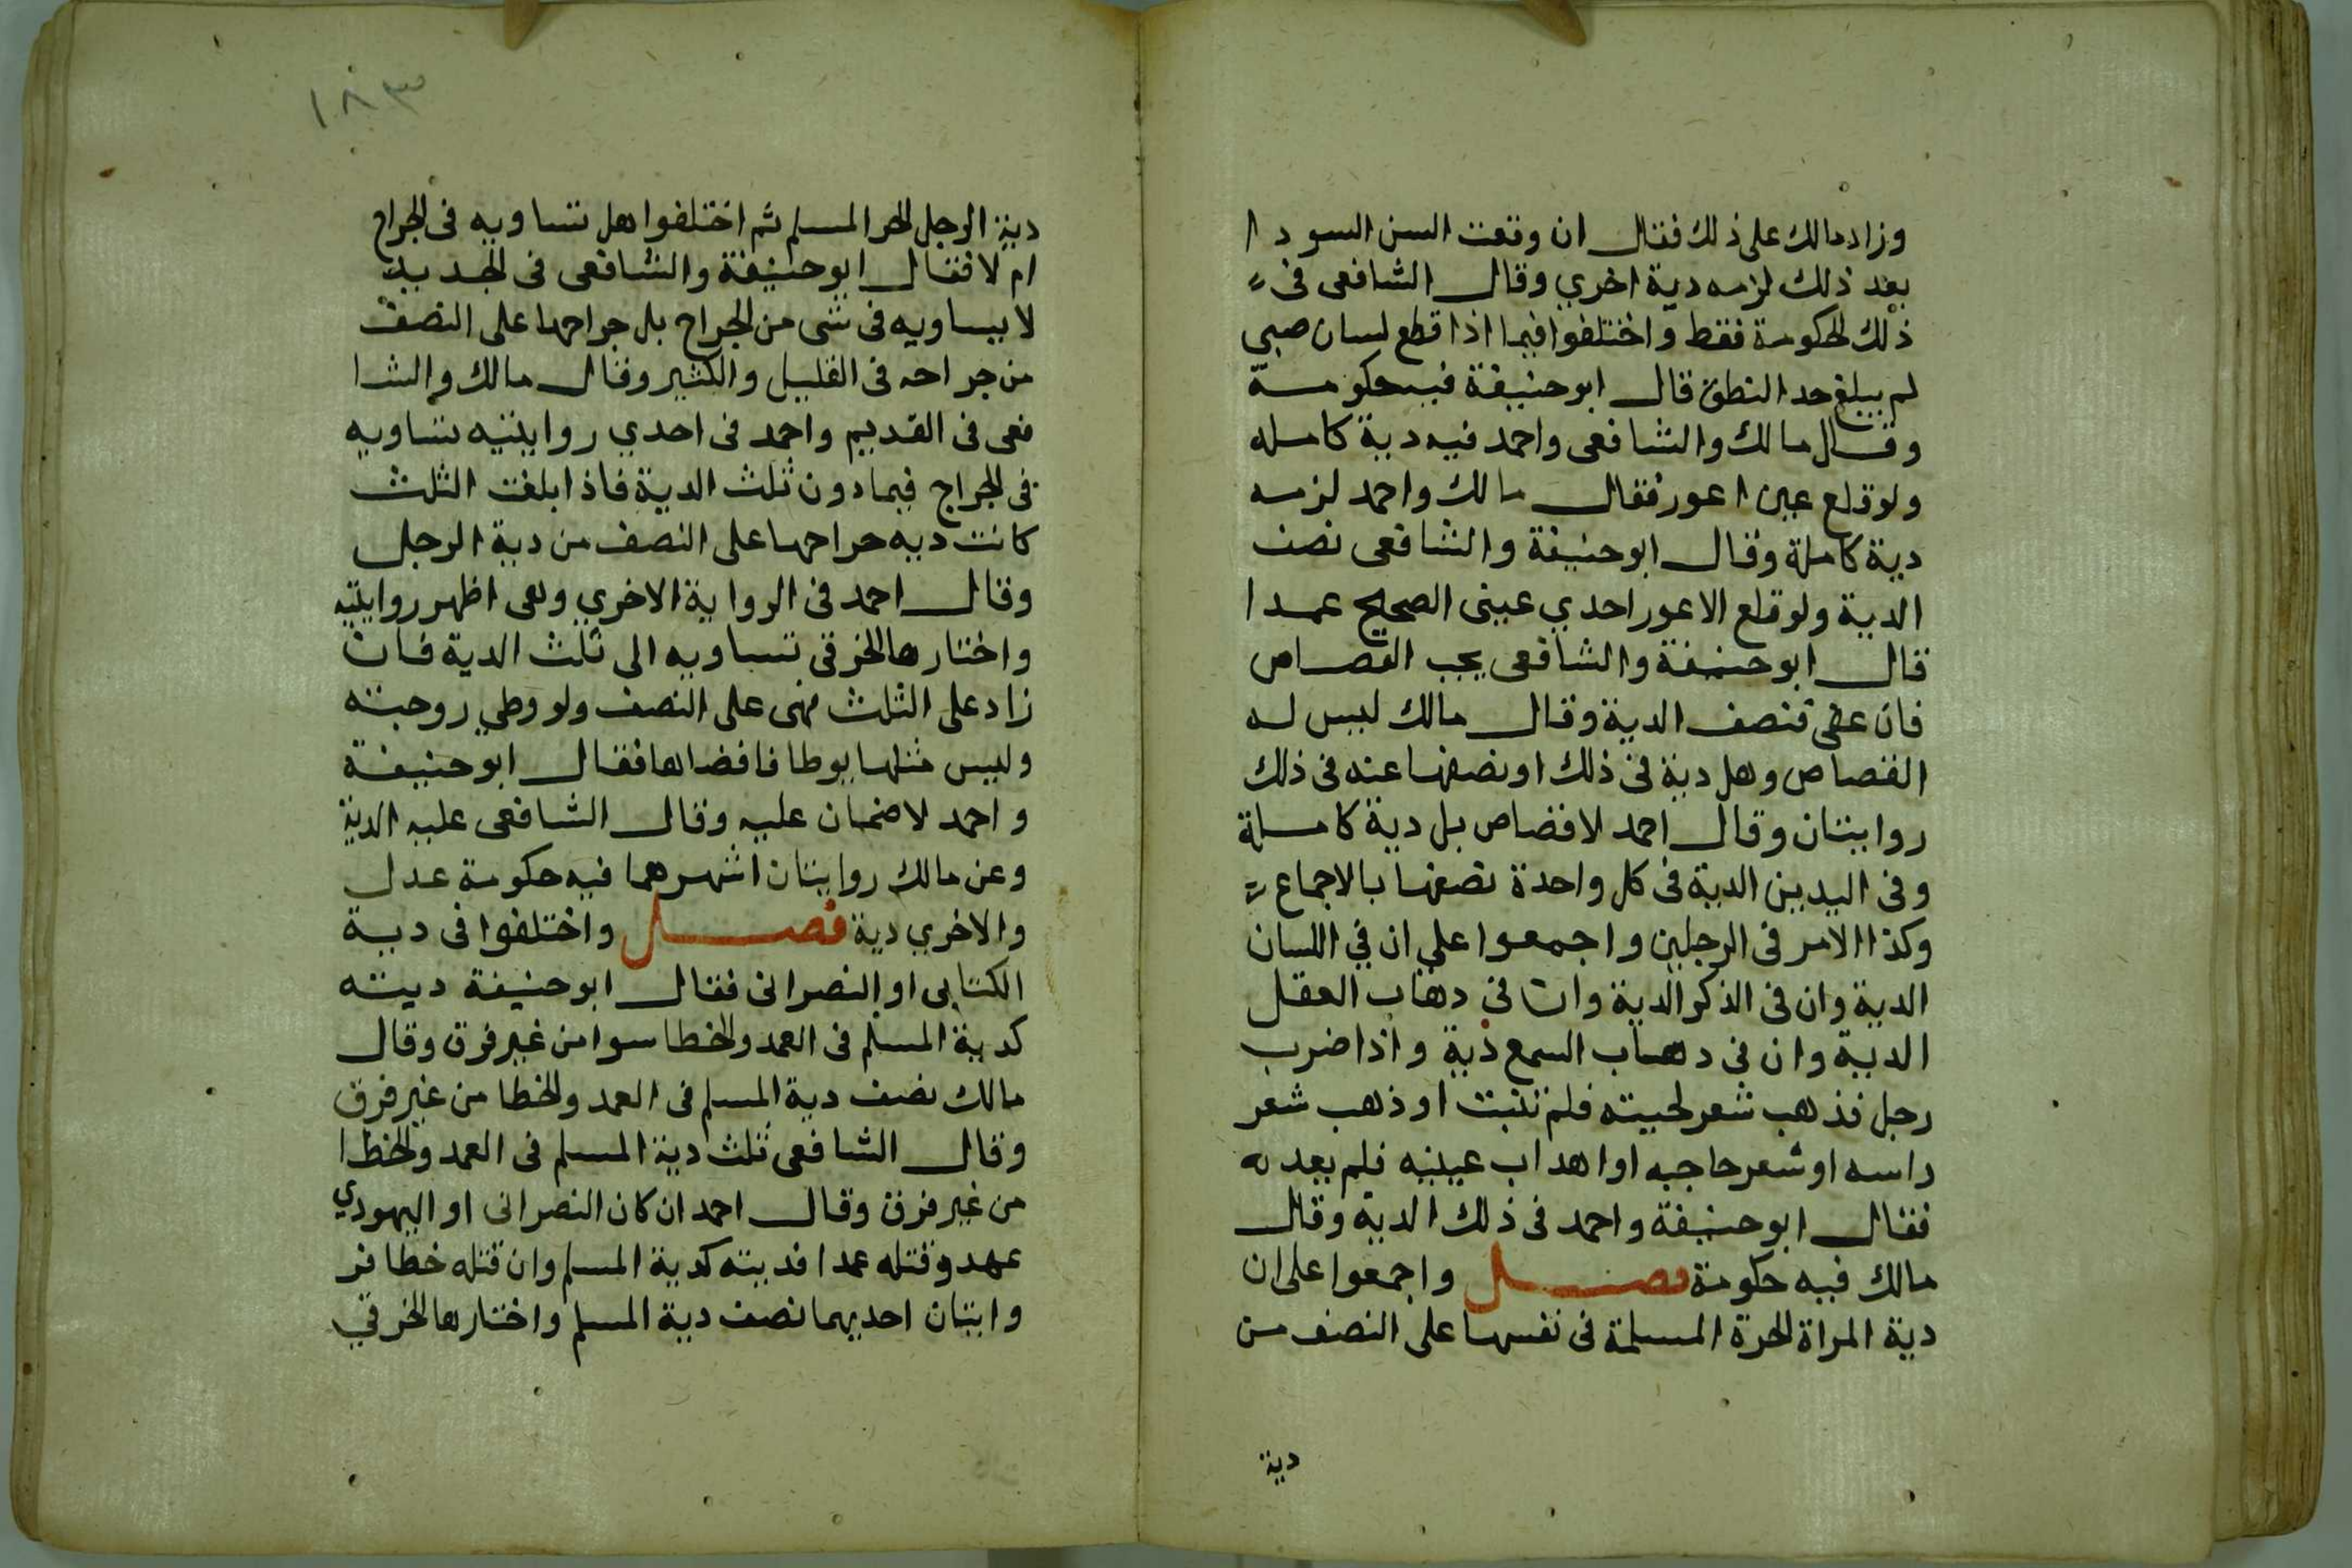 وزاد مالك على ذلك فقال ان وقعت السن السودا
بعد ذلك لزمه دية اخري وقال الشافعى فى
ذلك الحكومة فقط واختلفوا فيما اذا قطع لسان صبي
لم يبلغ حد النطق قال ابو حنيفة فيه حكومة
وقال مالك والشافعى واحمد فيه دية كامله
ولو قلع عين اعور فقال مالك واحمد لزمه
دية كاملة وقال ابو حنيفة والشافعى نصف
الدية ولو قلع الاعور احدي عينى الصحيح عمدا
قال ابو حنيفة والشافعى يجب القصاص
فان عفى فنصف الدية وقال مالك ليس له
القصاص وهل دية فى ذلك او نصفها عنه فى ذلك
روايتان وقال احمد لا قصاص بل دية كاملة
وفى اليدين الدية فى كل واحدة نصفها بالاجماع
وكذا الامر فى الرجلين واجمعوا على ان في اللسان
الدية وان فى الذكر الدية وان فى دهاب العقل
الدية وان فى دهاب السمع دية واذا ضرب
رجل فذهب شعر لحيته فلم تنبت او ذهب شعر
راسه او شعر حاجبه او اهداب عينيه فلم يعد
فقال ابو حنيفة واحمد فى ذلك الدية وقال
مالك فيه حكومة فصل واجمعوا على ان
دية المراة الحرة المسلمة فى نفسها على النصف من
دية
١٨٣
دية الرجل الحر المسلم ثم اختلفوا هل تساويه فى الجراح
ام لا فقال ابو حنيفة والشافعى فى الجديد
لا يساويه فى شى من الجراح بل جراحها على النصف
من جراحه فى القليل والكثير وقال مالك والشا
فعى فى القديم واحمد فى احدي روايتيه تساويه
فى الجراح فيما دون ثلث الدية فاذا بلغت الثلث
كانت ديه جراحها على النصف من دية الرجل
وقال احمد فى الرواية الاخري وهى اظهر روايتيه
واختارها الخرقى تساويه الى ثلث الدية فان
زاد على الثلث فهى على النصف ولو وطي زوجته
وليس مثلها يوطا فافضاها فقال ابو حنيفة
واحمد لا ضمان عليه وقال الشافعى عليه الدية
وعن مالك روايتان اشهرهما فيه حكومة عدل
والاخري دية فصل واختلفوا فى دية
الكتابى او النصرانى فقال ابو حنيفة ديته
كدية المسلم فى العمد والخطا سوا من غير فرق وقال
مالك نصف دية المسلم فى العمد والخطا من غير فرق
وقال الشافعى ثلث دية المسلم فى العمد والخطا
من غير فرق وقال احمد ان كان النصرانى او اليهودي
عهد وقتله عمدا فديته كدية المسلم وان قتله خطا فر
وايتان احديهما نصف دية المسلم واختارها الخرقي